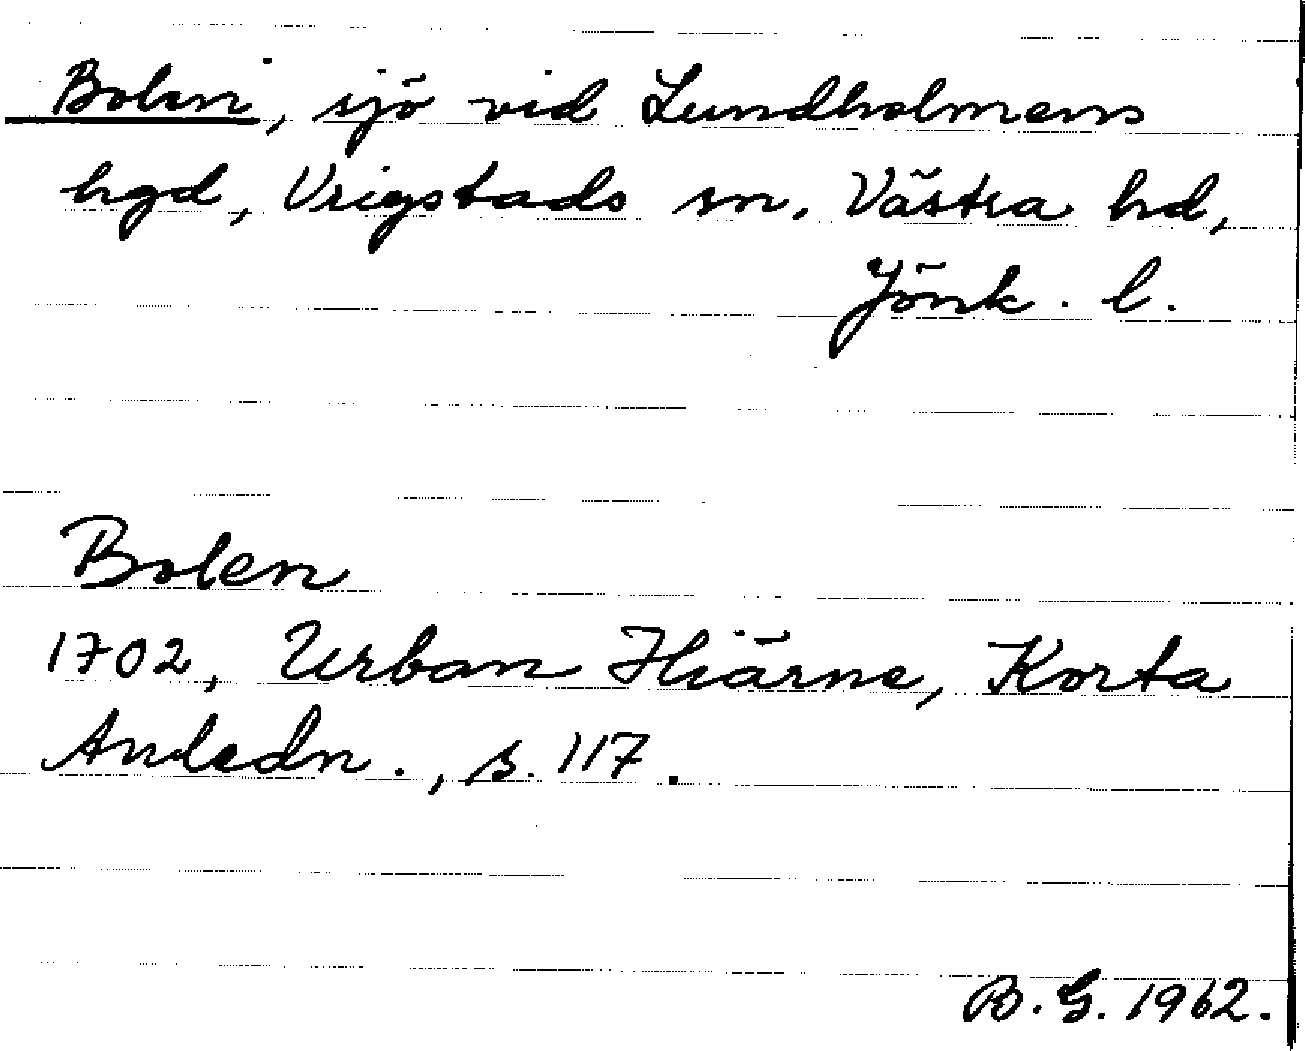 Bolen, sjö vid Lundholmens
hgd, Vrigstads sn. Västra hd,
Jönk. l.
Bolen
1702, Urban Hiärne, Korta
Anledn., s. 117.
B. G. 1962.